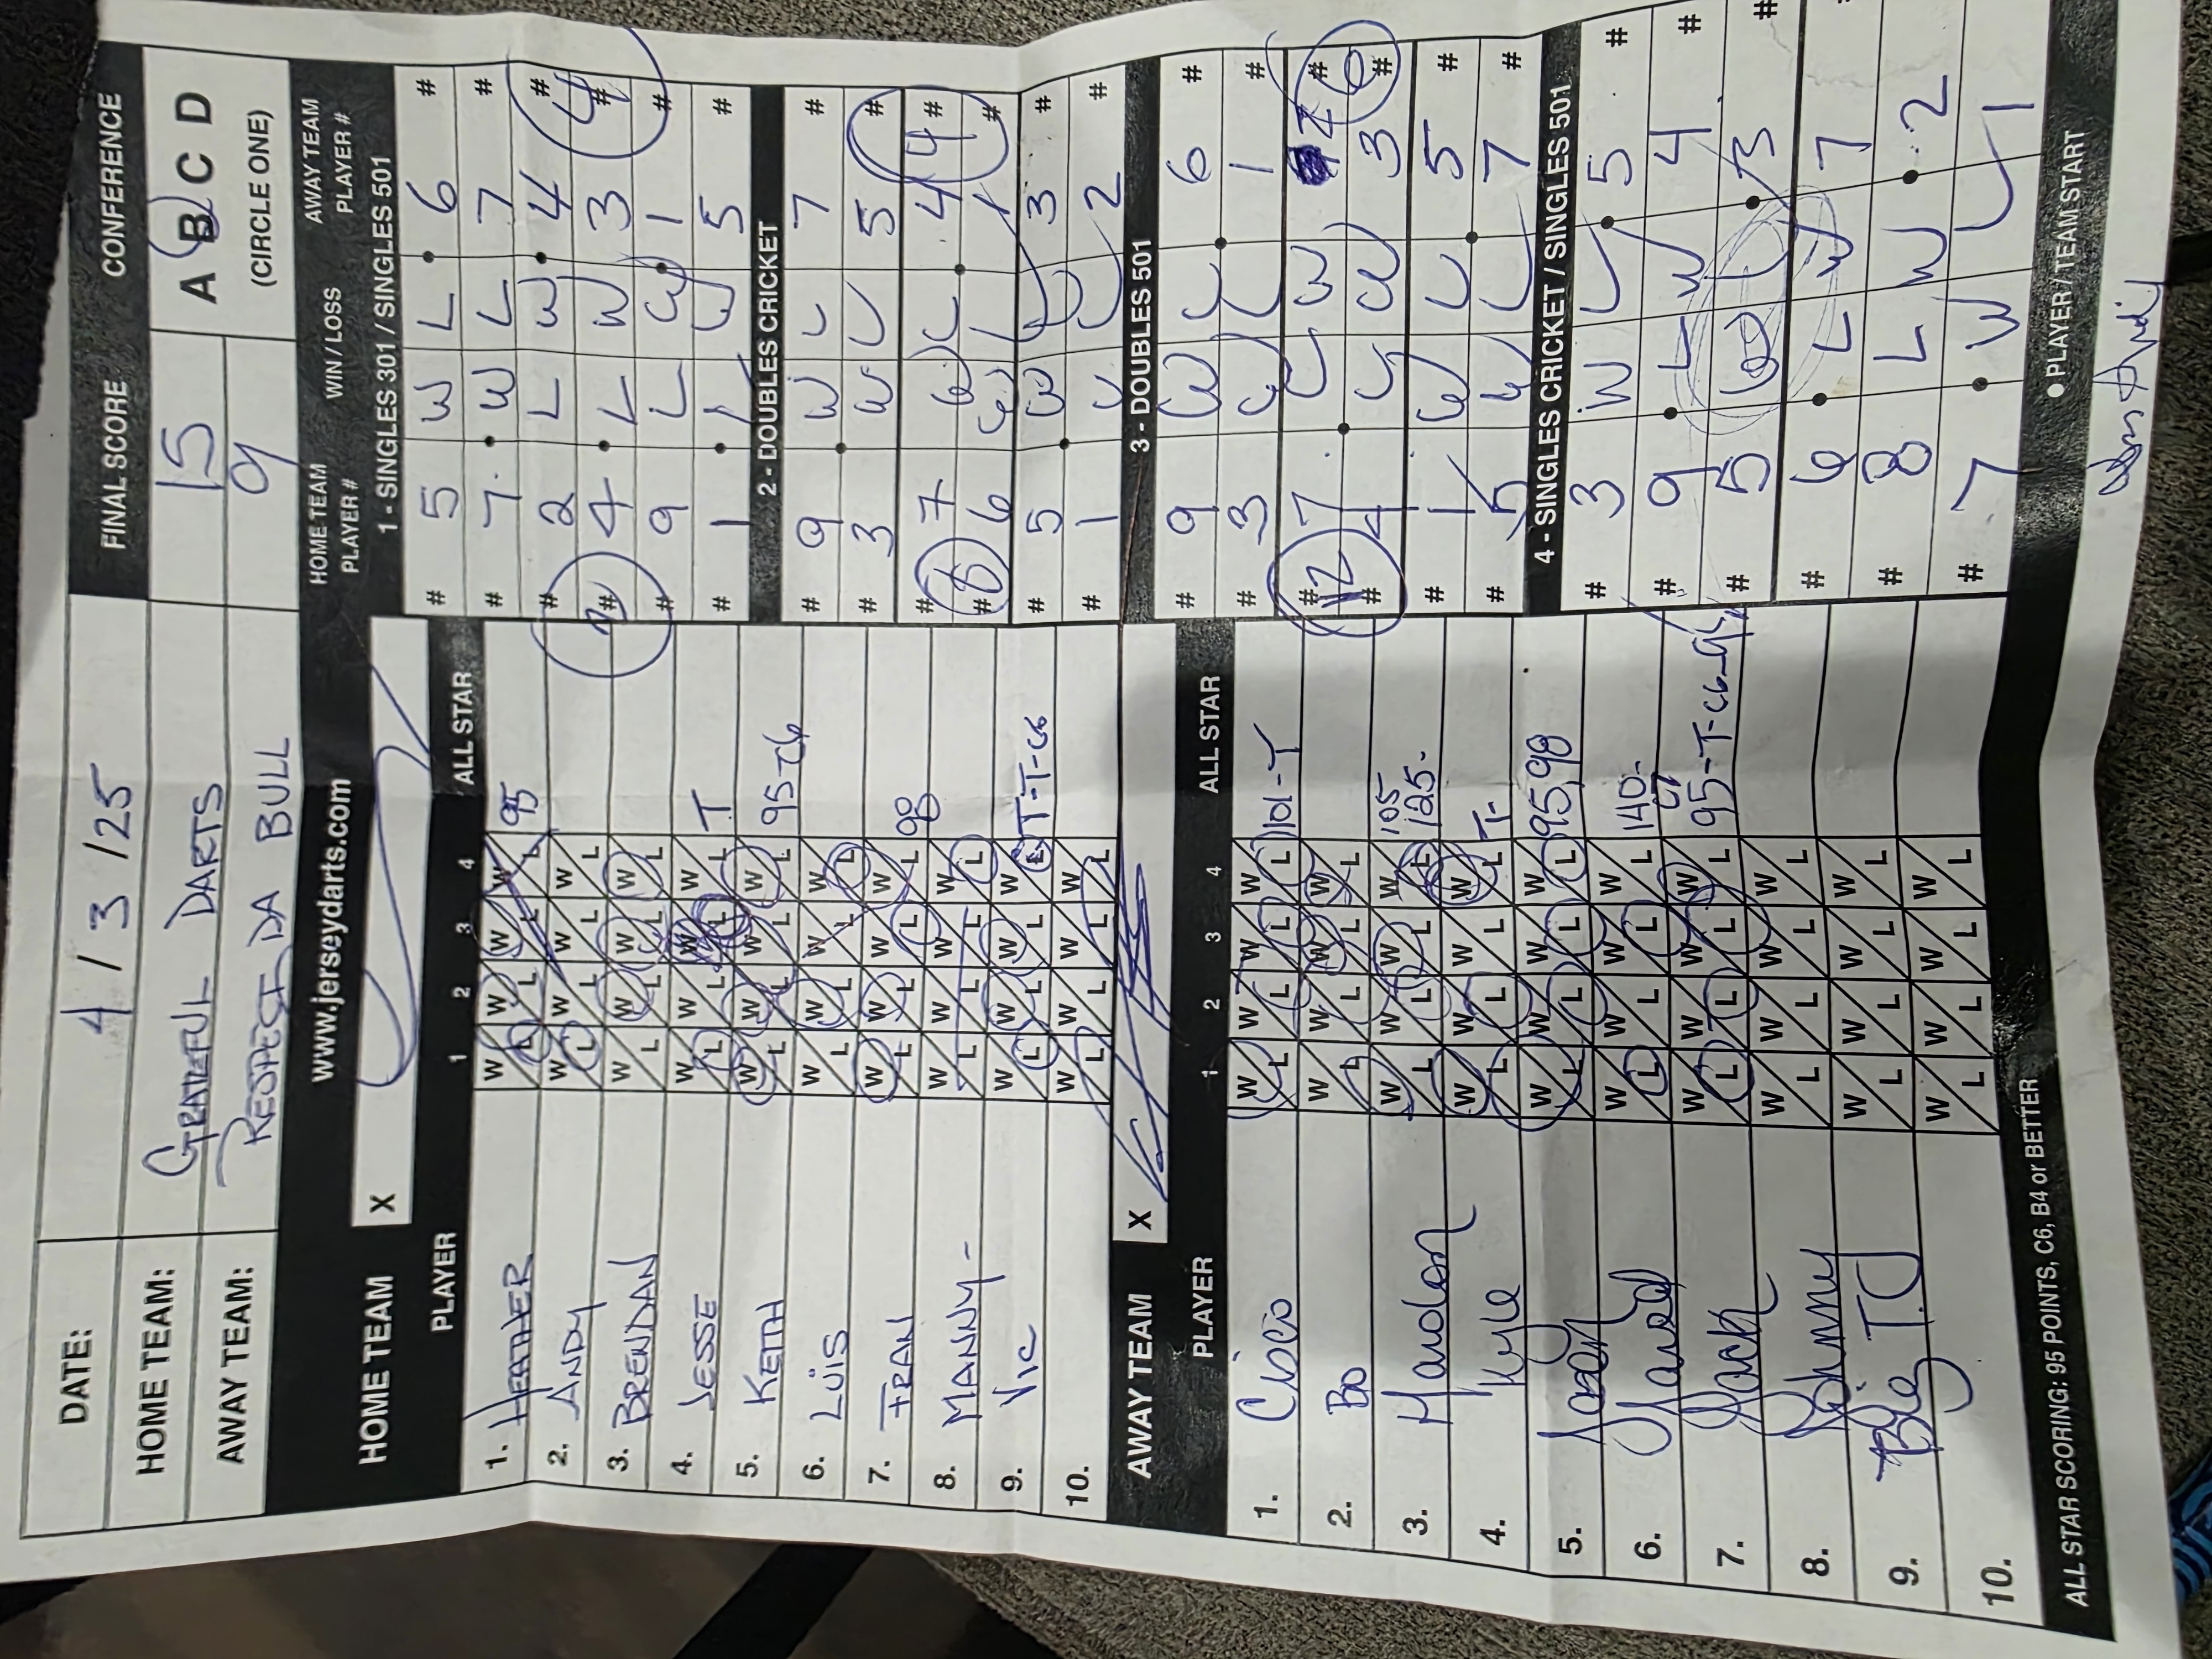 DATE: 4 / 3 / 25 FINAL SCORE CONFERENCE
HOME TEAM: GRATEFUL DARTS 15 A B C D
AWAY TEAM: RESPECT DA BULL 9 (CIRCLE ONE)
www.jerseydarts.com
HOME TEAM X
PLAYER 1 2 3 4 ALL STAR
1. HEATHER W L W L W L W L 95
2. ANDY W L W L W L W L
3. BRENDAN W L W L W L W L
4. JESSE W L W L W L W L T
5. KEITH W L W L W L W L 95-C6
6. LUIS W L W L W L W L
7. FRAN W L W L W L W L 98
8. MANNY- W L W L W L W L
9. VIC W L W L W L W L T-T-C6
10. W L W L W L W L
AWAY TEAM X
PLAYER 1 2 3 4 ALL STAR
1. Cisco W L W L W L W L 101-T
2. Bo W L W L W L W L
3. W L W L W L W L 105 125-
4. Kyle W L W L W L W L T-
5. W L W L W L W L 95,98
6. W L W L W L W L 140-
7. W L W L W L W L 95-T-C6-
8. W L W L W L W L
9. Big T.J W L W L W L W L
10. W L W L W L W L
ALL STAR SCORING: 95 POINTS, C6, B4 or BETTER
HOME TEAM PLAYER # WIN / LOSS AWAY TEAM PLAYER #
1 - SINGLES 301 / SINGLES 501
# 5 W L 6 #
# 7 W L 7 #
# 2 L W 4 #
# 4 L W 3 #
# 9 L W 1 #
# 1 L W 5 #
2 4
2 - DOUBLES CRICKET
# 9 W L 7 #
# 3 W L 5 #
# 7 W L 4 #
# 6 W L 1 #
# 5 W L 3 #
# 1 L 2 #
8 4
3 - DOUBLES 501
# 9 W L 6 #
# 3 W L 1 #
# 7 L W 2 #
# 4 L W 3 #
# 1 W L 5 #
# 5 W L 7 #
12 6
4 - SINGLES CRICKET / SINGLES 501
# 3 W L 5 #
# 9 L W 4 #
# 5 W L 3 #
# 6 L W 7
# 8 L W 2
# 7 W L 1
● PLAYER / TEAM START